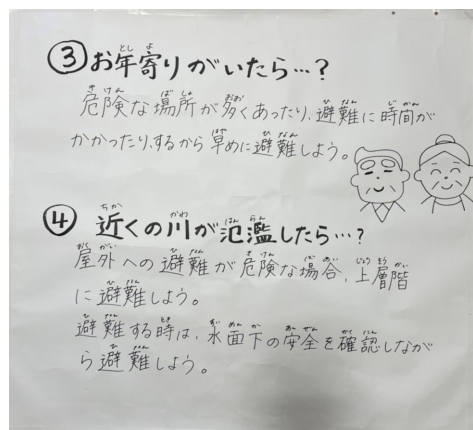 ③ お年寄りがいたら…?
危険な場所が多くあったり、避難に時間が
かかったり、するから早めに避難しよう。
④ 近くの川が氾濫したら…?
屋外への避難が危険な場合、上層階
に避難しよう。
避難する時は、水面下の安全を確認しなが
ら避難しよう。